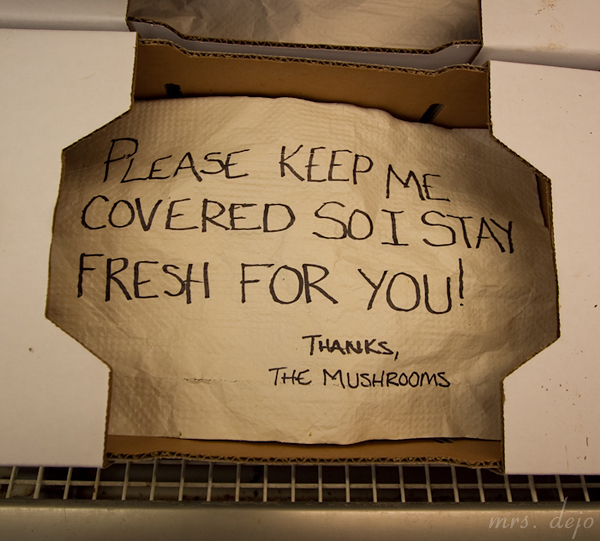 PLEASE KEEP ME
COVERED SO I STAY
FRESH FOR YOU!
THANKS,
THE MUSHROOMS
mrs. dejo